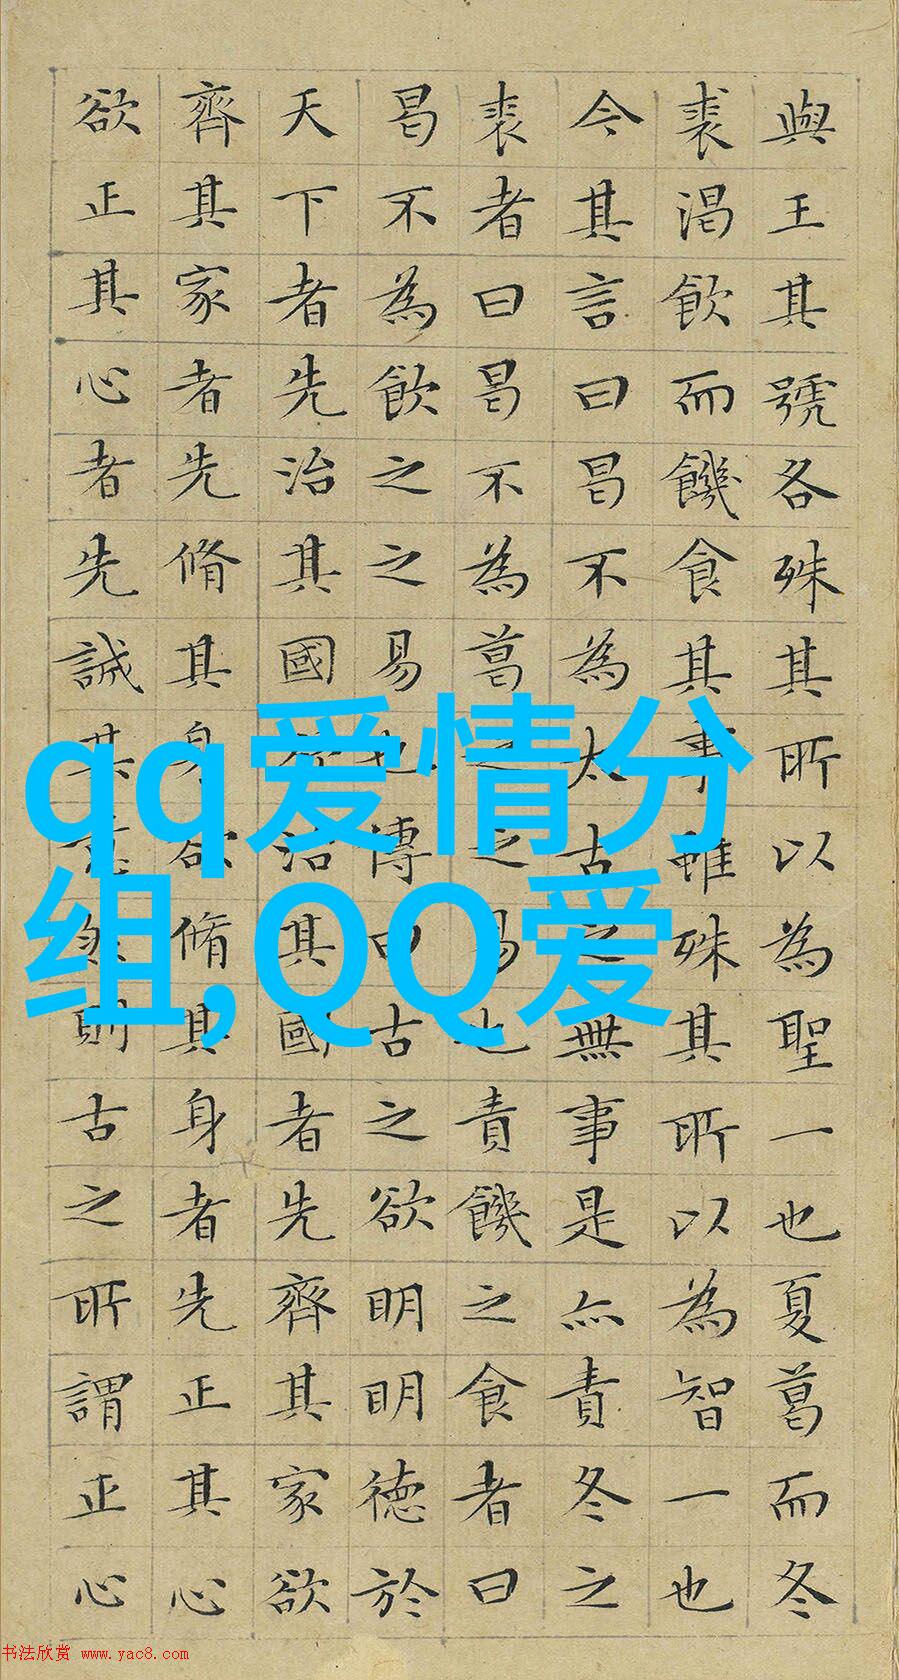 與王其號各殊其所以為聖一也夏葛而冬
裘渴飲而饑食其事雖殊其所以為智一也
今其言曰曷不為太古之無事是亦責冬之
裘者曰曷不為葛之之易也責饑之食者曰
曷不為飲之之易也傳曰古之欲明明德於
天下者先治其國欲治其國者先齊其家欲
齊其家者先脩其身欲脩其身者先正其心
欲正其心者先誠其意然則古之所謂正心
qq爱情分
组,QQ爱
书法欣赏 www.yac8.com